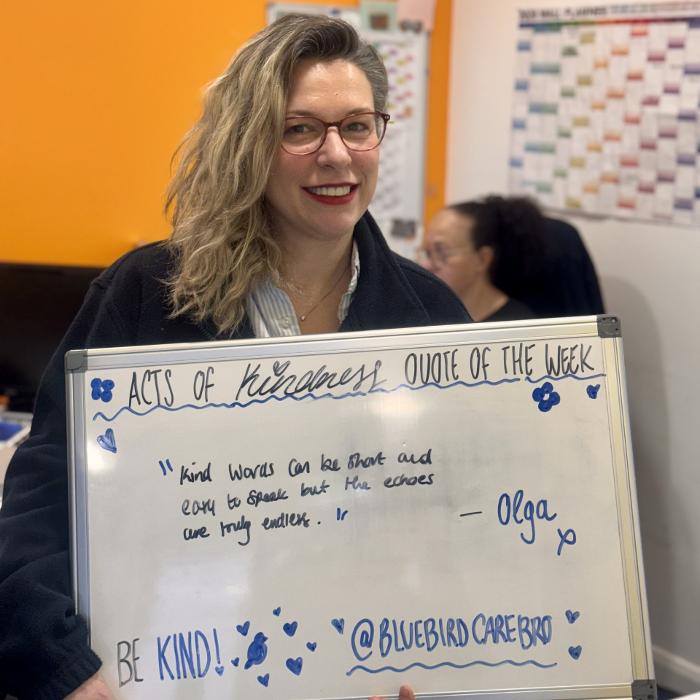 2025 WALL PLANNER
ACTS OF Kindness QUOTE OF THE WEEK
"Kind words can be short and
easy to speak but the echoes
are truly endless."
— Olga
x
BE KIND!
@BLUEBIRDCAREBRO